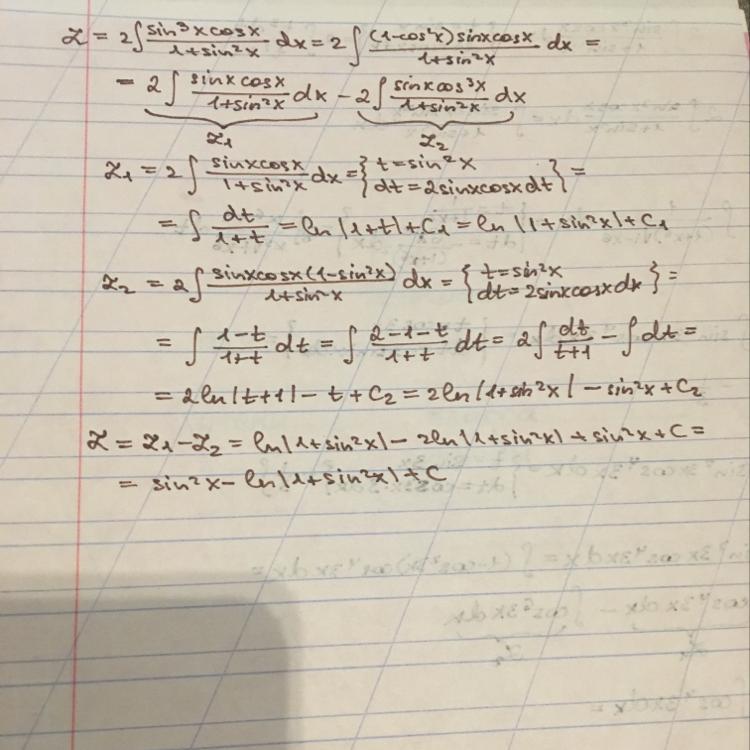 Z = 2∫ sin³x cosx / 1+sin²x dx = 2 ∫ (1-cos²x) sinx cosx / 1+sin²x dx =
= 2 ∫ sinx cosx / 1+sin²x dx - 2∫ sinx cos³x / 1+sin²x dx
Z₁ Z₂
Z₁ = 2 ∫ sinx cosx / 1+sin²x dx = { t = sin²x
dt = 2sinx cosx dt } =
= ∫ dt / 1+t = ln |1+t| + C₁ = ln |1+sin²x| + C₁
Z₂ = 2∫ sinx cosx (1-sin²x) / 1+sin²x dx = { t = sin²x
dt = 2sinx cosx dx } =
= ∫ 1-t / 1+t dt = ∫ 2-1-t / 1+t dt = 2∫ dt / t+1 - ∫ dt =
= 2ln |t+1| - t + C₂ = 2ln |1+sin²x| - sin²x + C₂
Z = Z₁ - Z₂ = ln |1+sin²x| - 2ln |1+sin²x| + sin²x + C =
= sin²x - ln |1+sin²x| + C